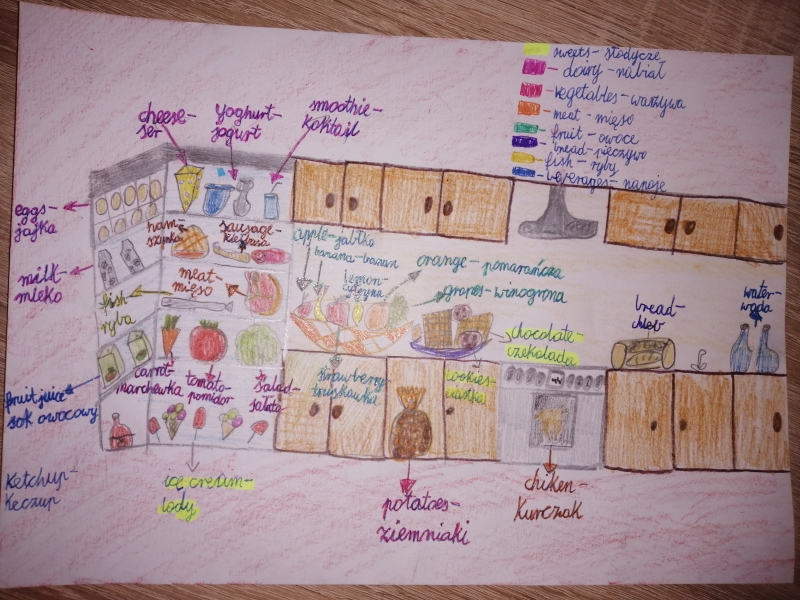 sweets-słodycze
dairy-nabiał
vegetables-warzywa
meat-mięso
fruit-owoce
bread-pieczywo
fish-ryby
beverages-napoje
cheese-
ser
yoghurt-
jogurt
smoothie-
koktail
eggs-
jajka
milk-
mleko
fish-
ryba
ham-
szynka
sausage-
kiełbasa
meat-
mięso
apple-jabłko
banana-banan
lemon-
cytryna
orange-pomarańcza
grapes-winogrona
chocolate-
czekolada
bread-
chleb
water-
woda
fruit juice-
sok owocowy
carrot-
marchewka
tomato-
pomidor
salad-
sałata
strawberry-
truskawka
cookies-
ciastka
ketchup-
keczup
ice cream-
lody
potatoes-
ziemniaki
chiken-
kurczak